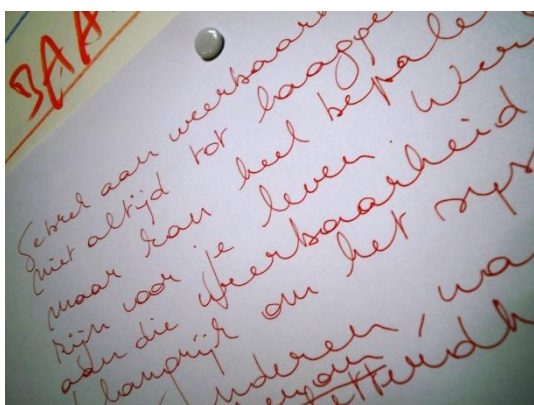 BAA
Gebrek aan weerbaar
niet altijd tot laagge
maar kan heel bepale
zijn voor je leven. Wer
aan die weerbaarheid
belangrijk om het sys
nderen, wa